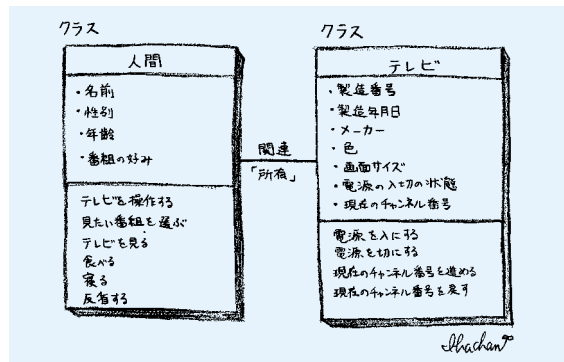 クラス
人間
・名前
・性別
・年齢
・番組の好み
テレビを操作する
見たい番組を選ぶ
テレビを見る
食べる
寝る
反省する
関連
「所有」
クラス
テレビ
・製造番号
・製造年月日
・メーカー
・色
・画面サイズ
・電源の入切の状態
・現在のチャンネル番号
電源を入にする
電源を切にする
現在のチャンネル番号を進める
現在のチャンネル番号を戻す